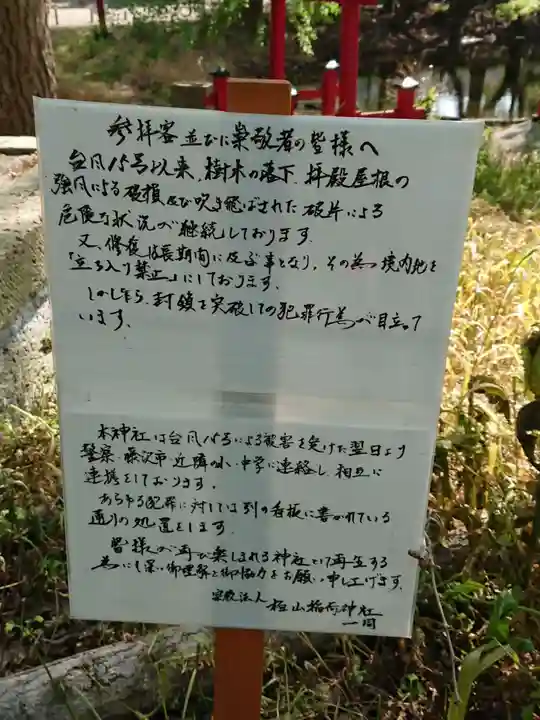 参拝客並びに崇敬者の皆様へ
台風15号以来、樹木の落下、拝殿屋根の
強風による破損及び吹き飛ばされた破片による
危険な状況が継続しております。
又、修復は長期間に及ぶ事となり、その為境内地を
「立ち入り禁止」にしております。
しかしながら、封鎖を突破しての犯罪行為が目立って
います。
本神社は台風15号による被害を受けた翌日より
警察・藤沢市・近隣の小・中学に連絡し、相互に
連携をしております。
あらゆる犯罪に対しては別の看板に書かれている
通りの処置をします。
皆様が再び楽しまれる神社として再生する
為にも深い御理解と御協力をお願い申し上げます。
宗教法人 稲荷神社
一同